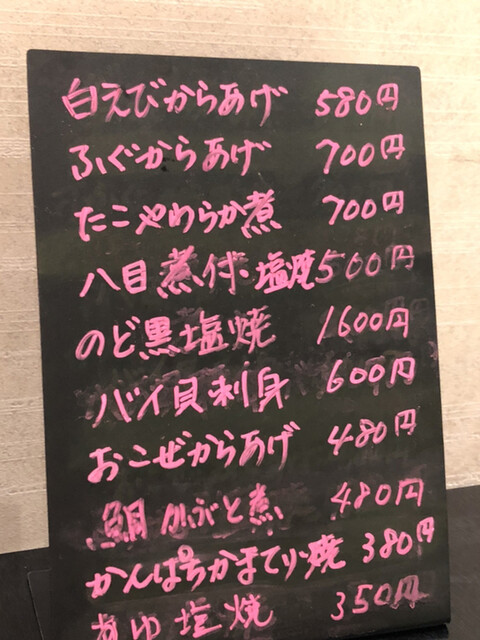 白えびからあげ 580円
ふぐからあげ 700円
たこやわらか煮 700円
八目煮付・塩焼 500円
のど黒塩焼 1600円
バイ貝刺身 600円
おこぜからあげ 480円
鯛かぶと煮 480円
かんぱちかまてり焼 380円
あゆ塩焼 350円